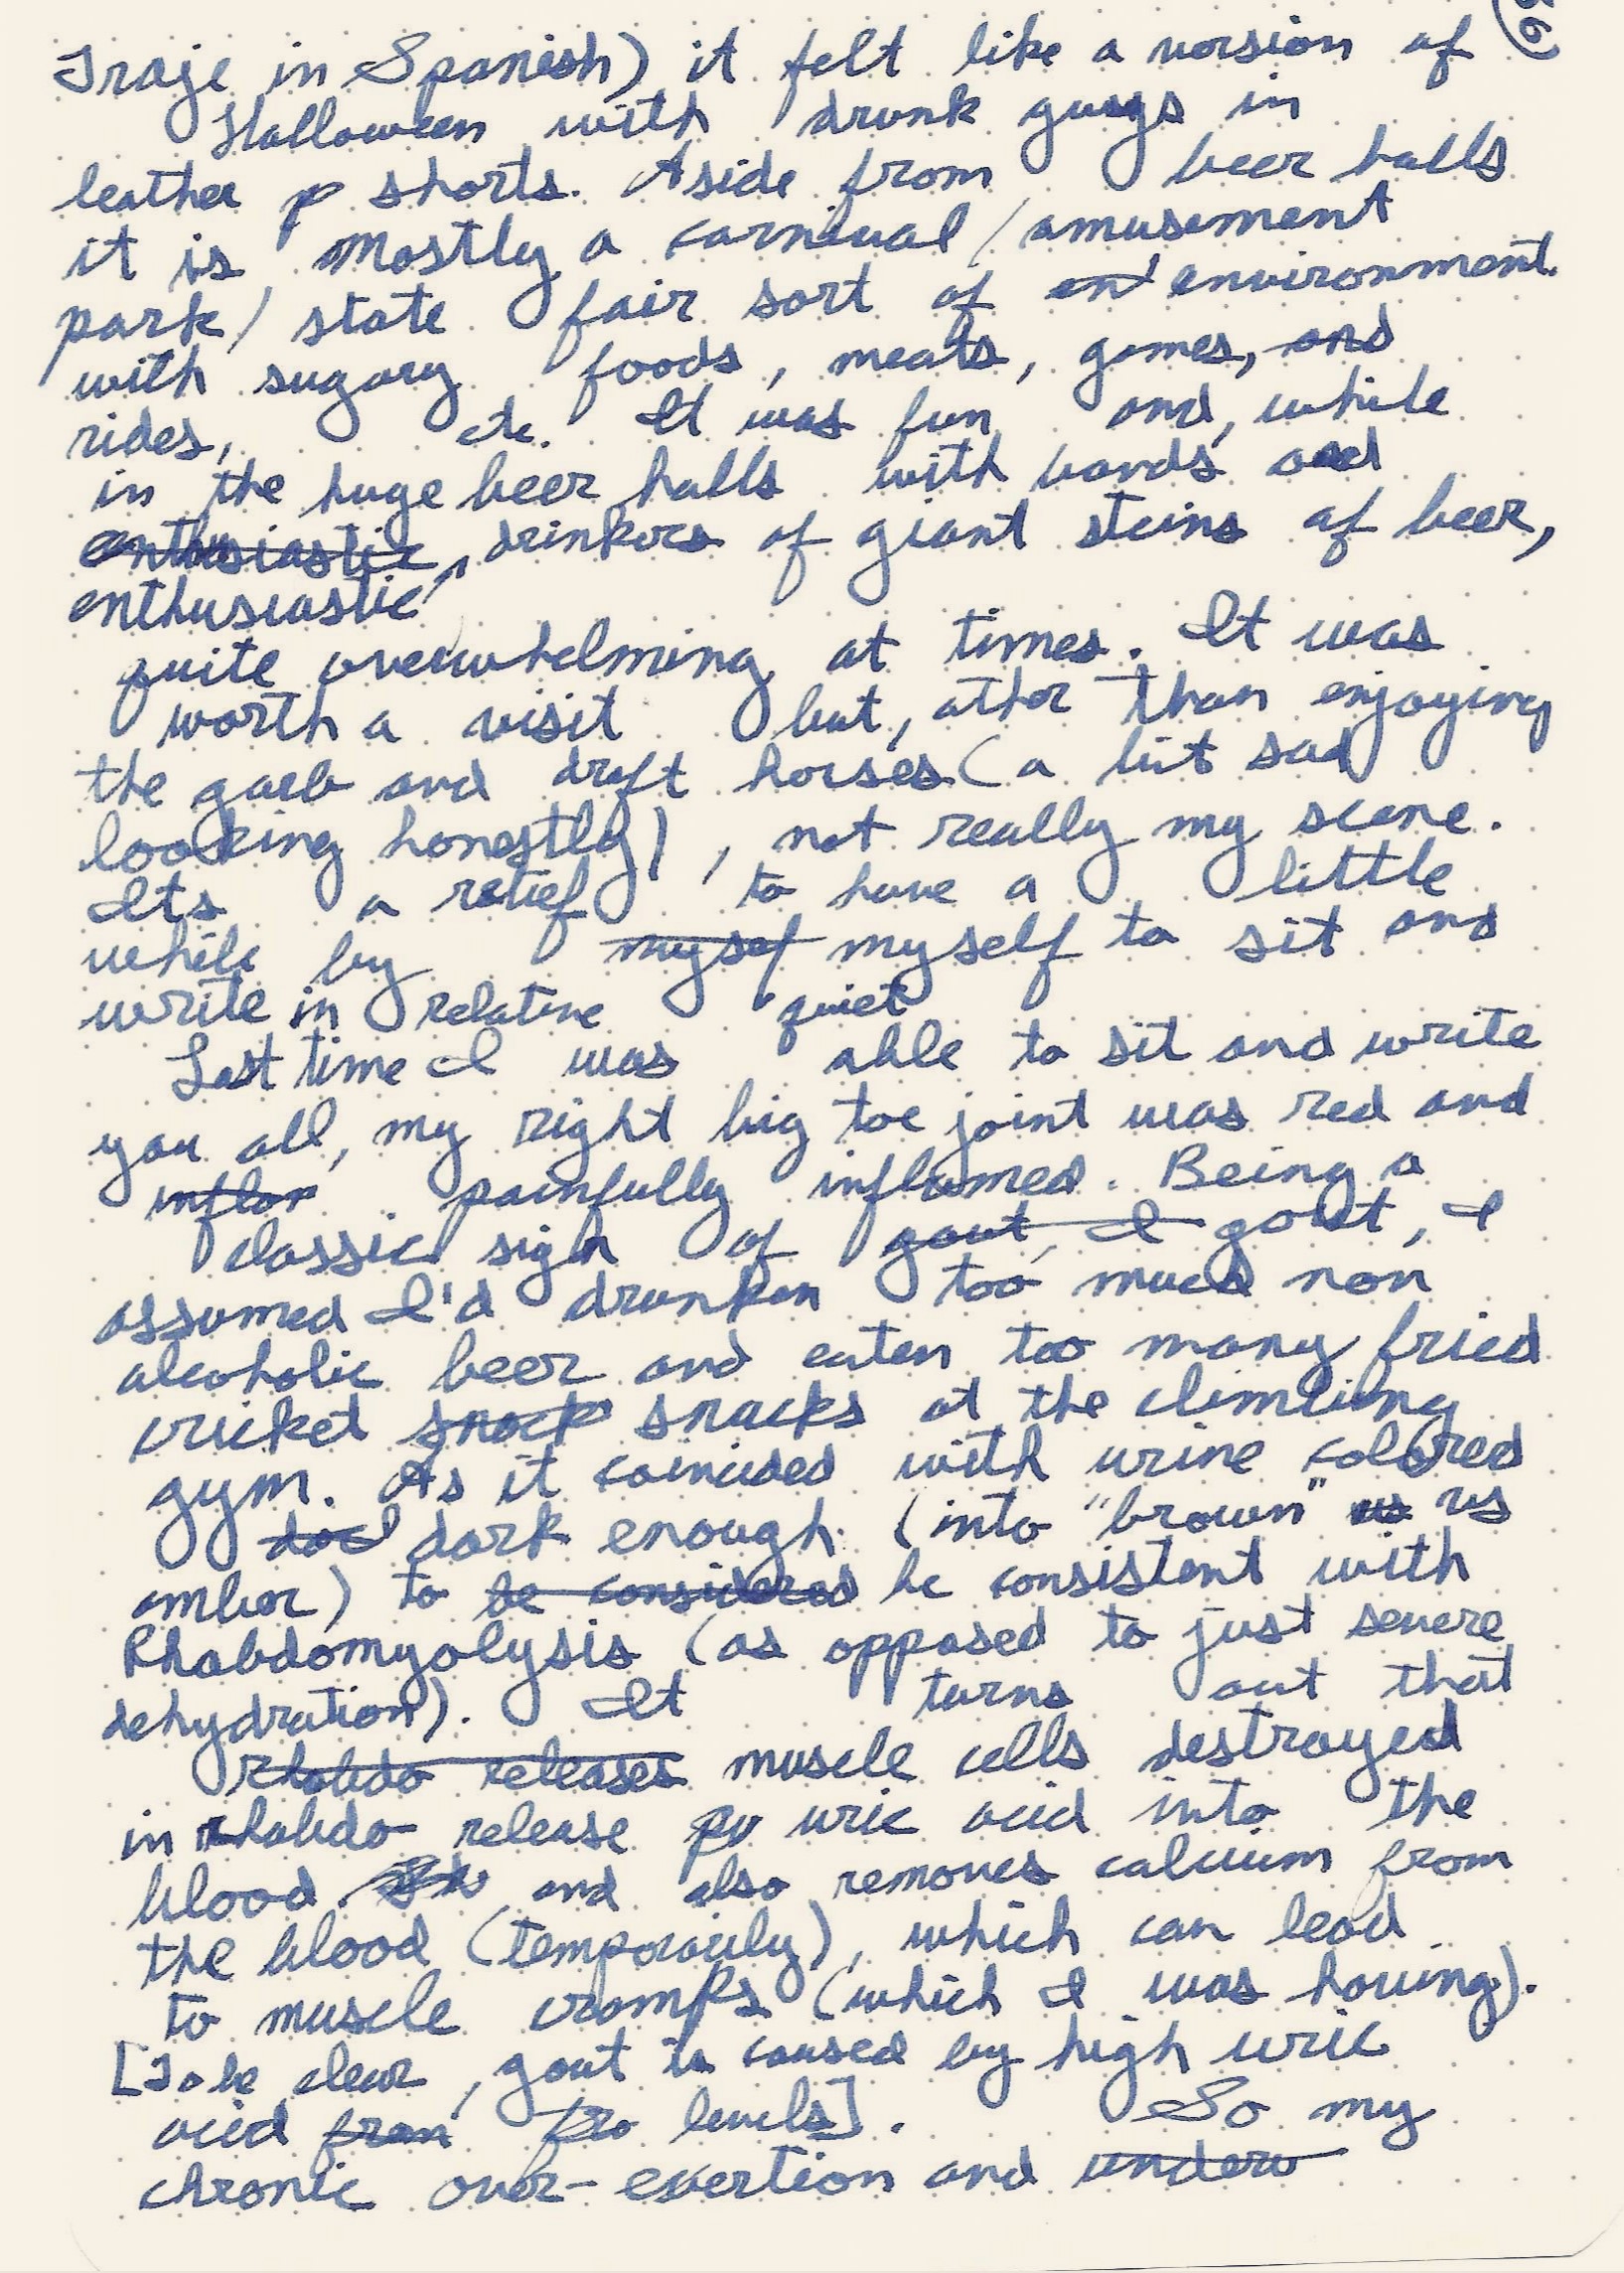 Traje in Spanish) it felt like a version of
Halloween with drunk guys in
leather p shorts. Aside from beer halls
it is mostly a carnival/amusement
park/state fair sort of en environment
with sugary foods, meats, games, and
rides, etc. It was fun and, while
in the huge beer halls with bands and
enthusiastic drinkers of giant steins of beer,
enthusiastic
quite overwhelming at times. It was
worth a visit but, other than enjoying
the garb and draft horses (a bit sad
looking honestly), not really my scene.
Its a relief to have a little
while by mysef myself to sit and
write in relative quiet
Last time I was able to sit and write
you all, my right big toe joint was red and
inflam painfully inflamed. Being a
classic sign of gout, I gout, I
assumed I'd drunken too much non
alcoholic beer and eaten too many fried
cricket snack snacks at the climbing
gym. As it coincided with urine colored
dark enough (into "brown" vs vs
amber) to be considered be consistent with
Rhabdomyolysis (as opposed to just severe
dehydration). It turns out that
Rhabdo releases muscle cells destroyed
in rhabdo release pu uric acid into the
blood. and also removes calcium from
the blood (temporarily), which can lead
to muscle cramps (which I was having).
[To be clear, gout is caused by high uric
acid from levels]. So my
chronic over-exertion and underw